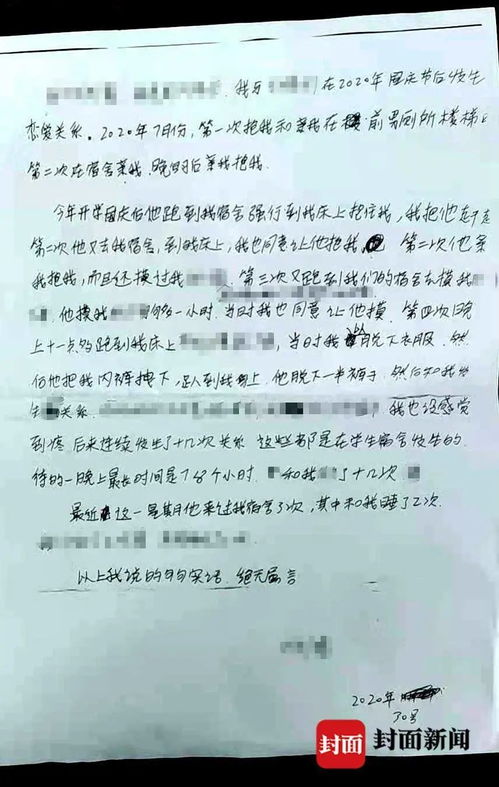 我与 在2020年国庆节后发生
恋爱关系。2020年7月份，第一次抱我和亲我在 前男厕所楼梯
第二次在宿舍亲我，晚 后亲我抱我。
今年开学国庆后他跑到我宿舍强行到我床上抱住我，我把他
第二次他又去我宿舍，到我床上，我也同意让他抱我 第二次他亲
我抱我，而且还摸过我 第三次又跑到我们的宿舍去摸我
他摸我 一小时．当时我也同意让他摸．第四次晚
上十一点多跑到我床上 ，当时我 脱下衣服．然
后他把我内裤 下， 到我 上，他脱下一半裤子，然后和我发
生 关系． ，我也没感觉
到疼 后来连续发生了十几次关系 这些都是在学生宿舍发生的．
待的一晚上最长时间是78个小时． 和我 了十几次
最近 这一星期他来过我宿舍3次，其中和我睡了2次．
以上我说的 句句实话，绝无 言
2020年
30号
封面 封面新闻